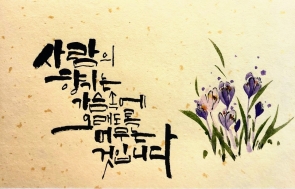 사람의
향기는
가슴속에
오래도록
머무는
것입니다